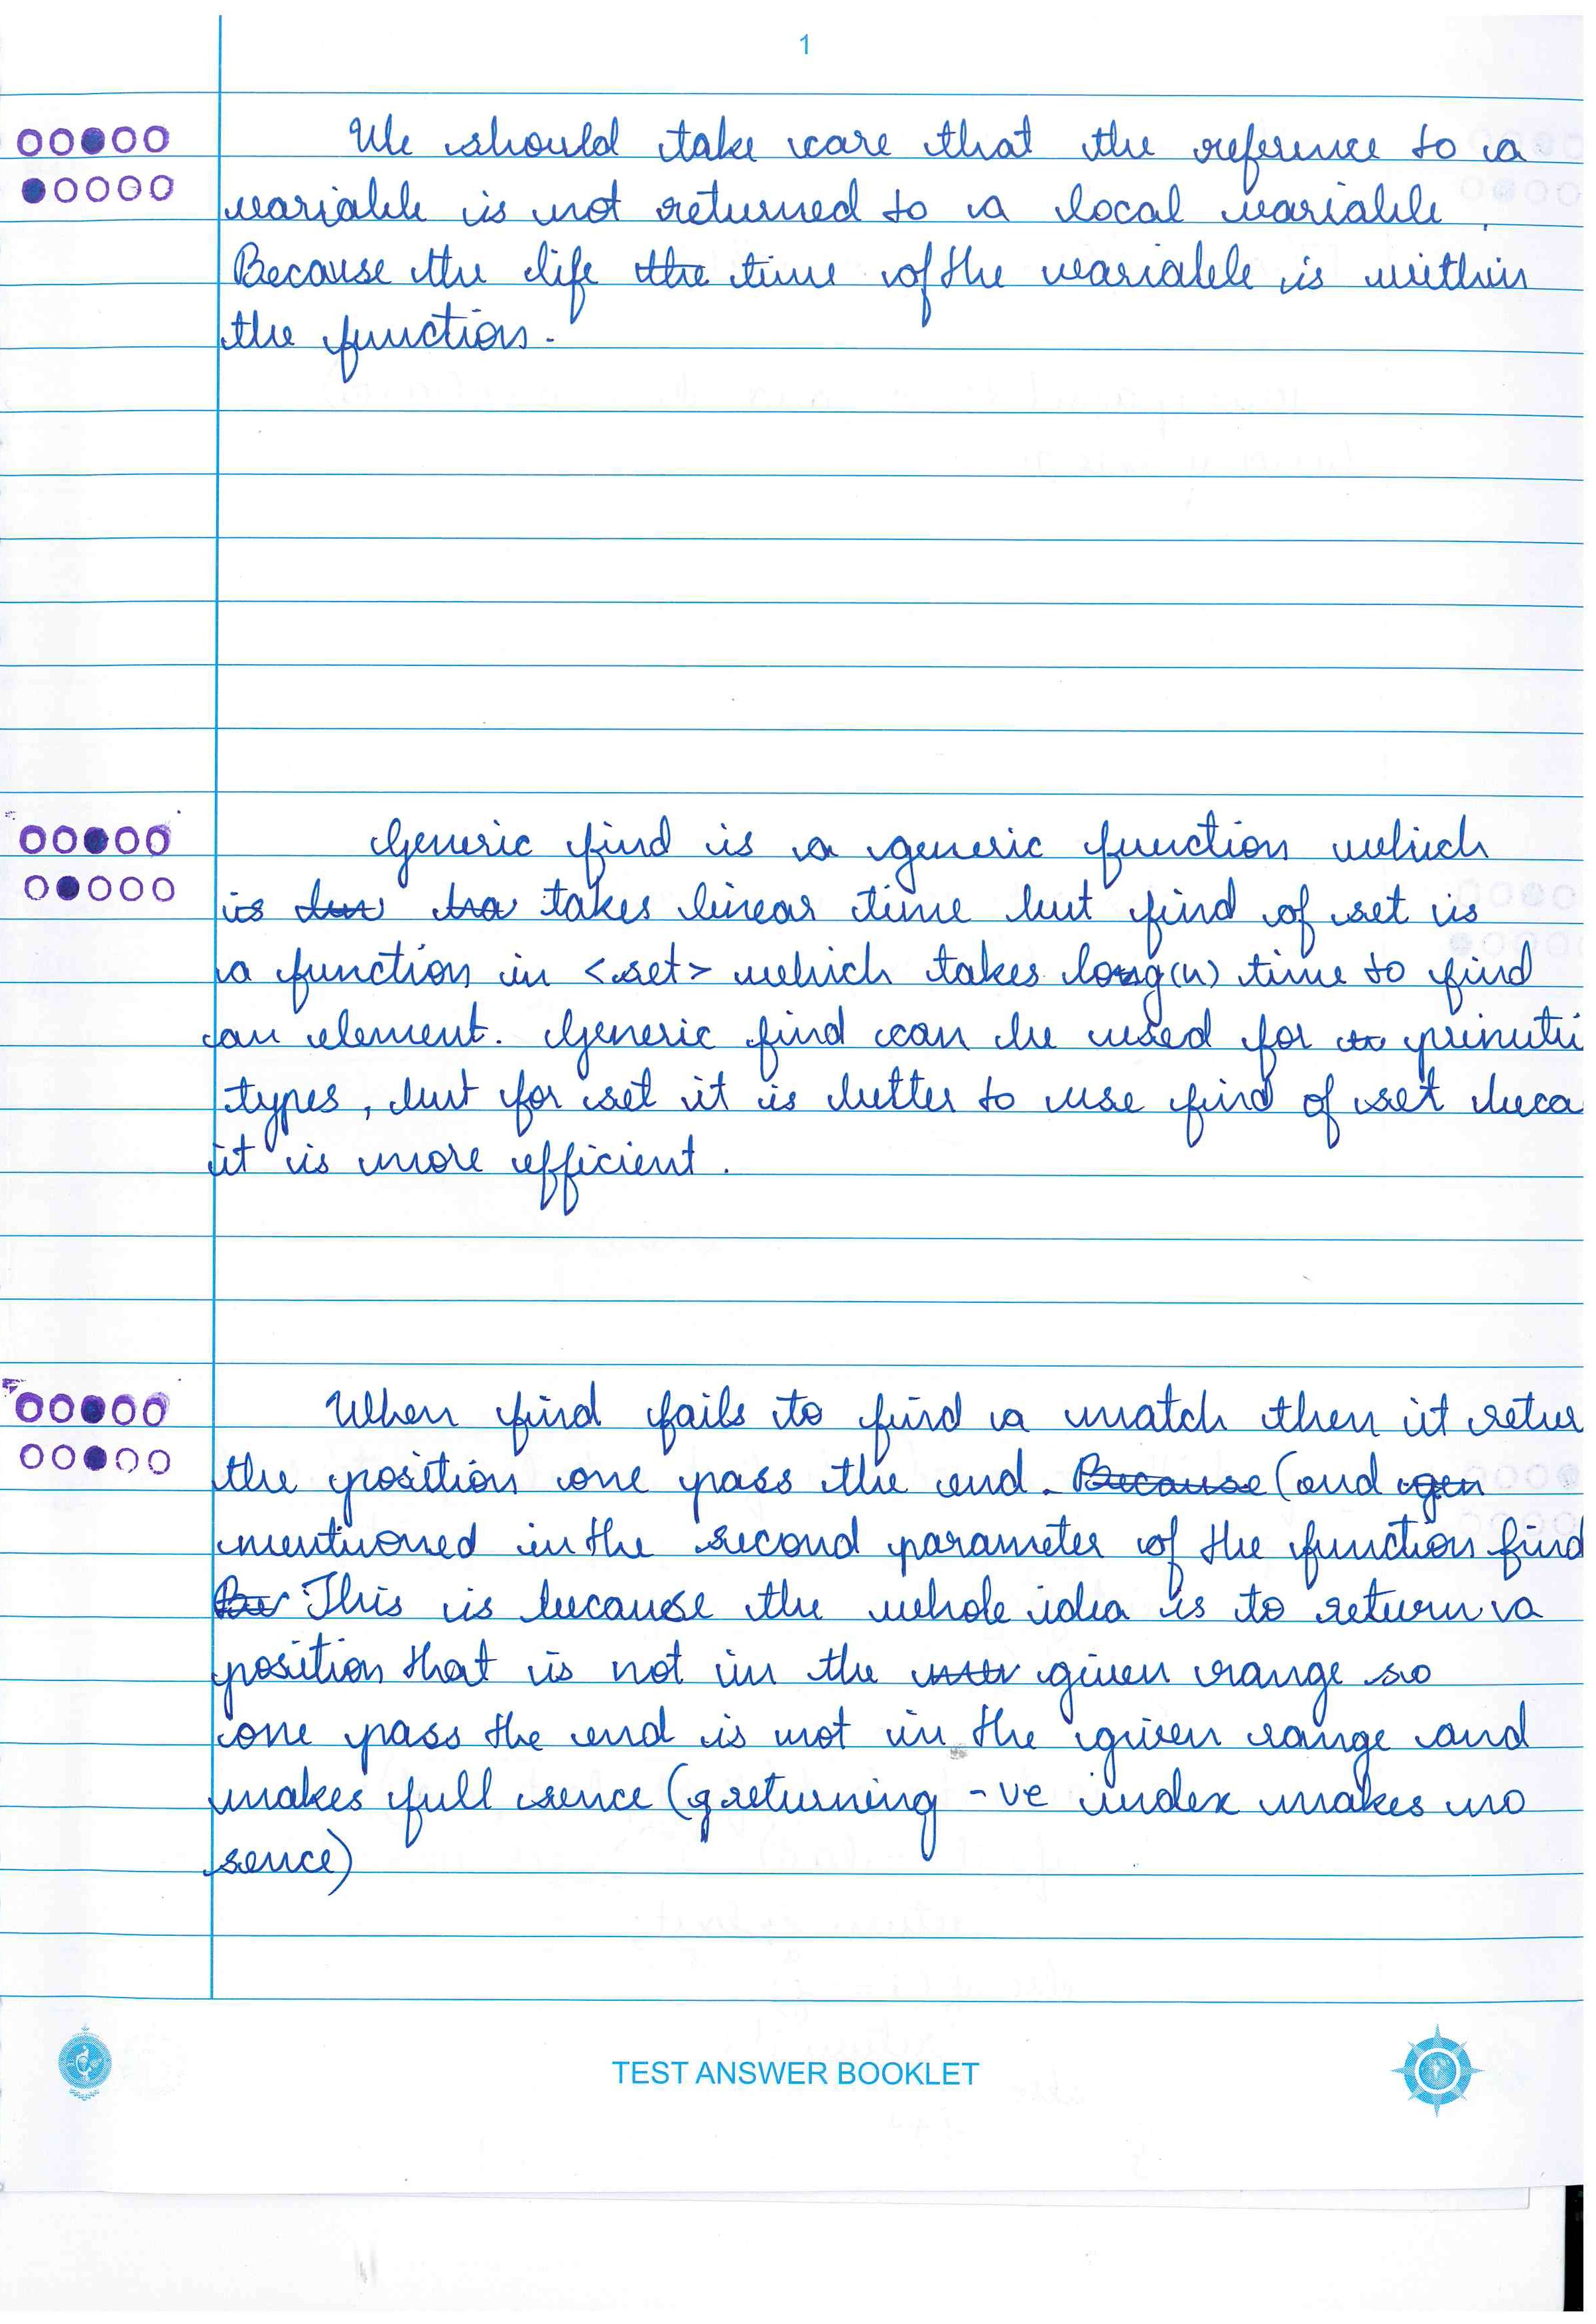 1
We should take care that the reference to a
variable is not returned to a local variable.
Because the life the time of the variable is within
the function.
Generic find is a generic function which
is takes linear time but find of set is
a function in <set> which takes log(n) time to find
an element. Generic find can be used for to primiti
types, but for set it is better to use find of set beca
it is more efficient.
When find fails to find a match then it retur
the position one pass the end. Because (and gen
mentioned in the second parameter of the function find
This is because the whole idea is to return a
position that is not in the given range so
one pass the end is not in the given range and
makes full sence (returning -ve index makes no
sence)
TEST ANSWER BOOKLET